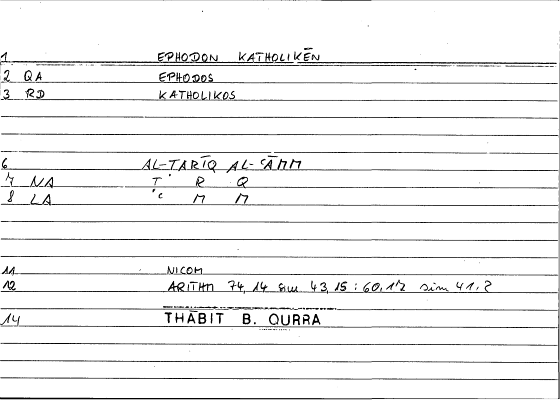 1 EPHODON KATHOLIKĒN
2 QA EPHODOS
3 RD KATHOLIKOS
6 AL-ṬARĪQ AL-ʿĀMM
7 NA Ṭ R Q
8 LA ʿ M M
11 NICOM
12 ARITHM 74,14 sim 43,15 : 60,17 sim 41,2
14 THĀBIT B. QURRA